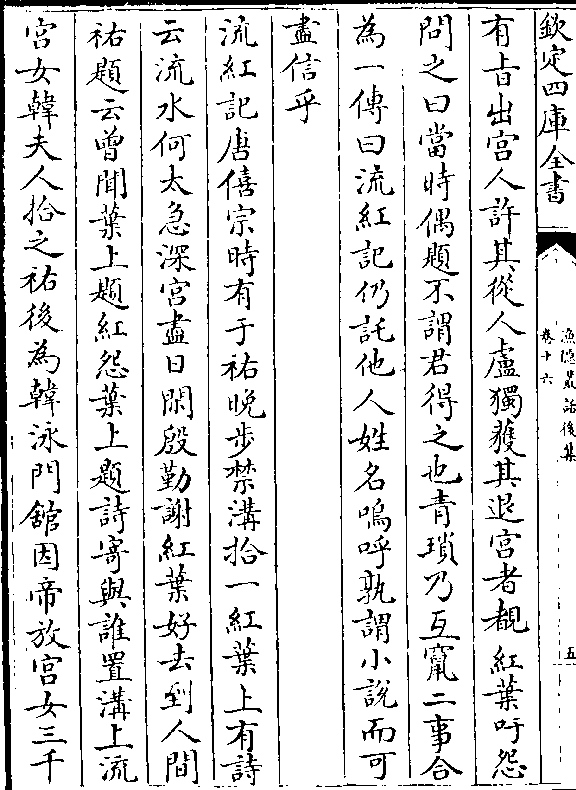 欽定四庫全書
漁隱叢話後集
卷十六
五
有旨出宮人許其從人盧獨獲其退宮者覩紅葉吁怨
問之曰當時偶題不謂君得之也青瑣乃互竄二事合
為一傳曰流紅記仍託他人姓名嗚呼孰謂小說而可
盡信乎
流紅記唐僖宗時有于祐晚步禁溝拾一紅葉上有詩
云流水何太急深宮盡日閑殷勤謝紅葉好去到人間
祐題云曾聞葉上題紅怨葉上題詩寄與誰置溝上流
宮女韓夫人拾之祐後為韓泳門舘因帝放宮女三千